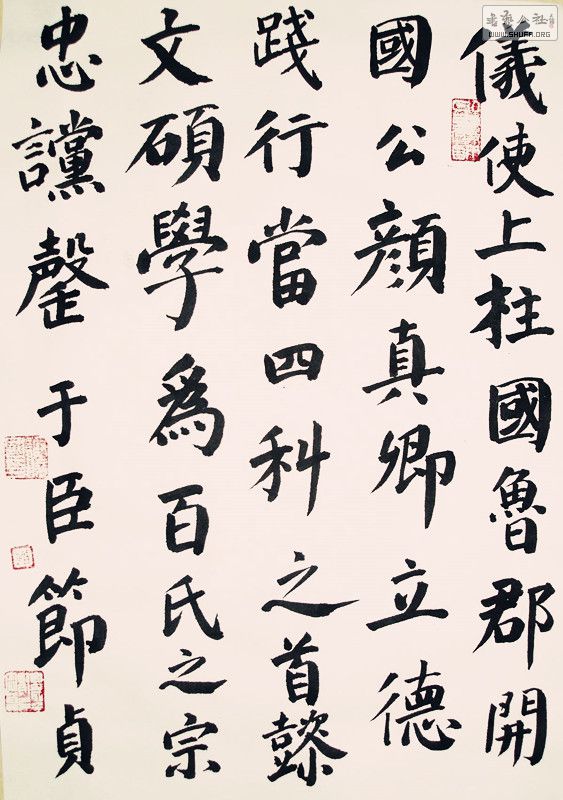 書藝公社
WWW.SHUFA.ORG
儀使上柱國魯郡開
國公顔真卿立德
踐行當四科之首懿
文碩學爲百氏之宗
忠讜罄于臣節貞